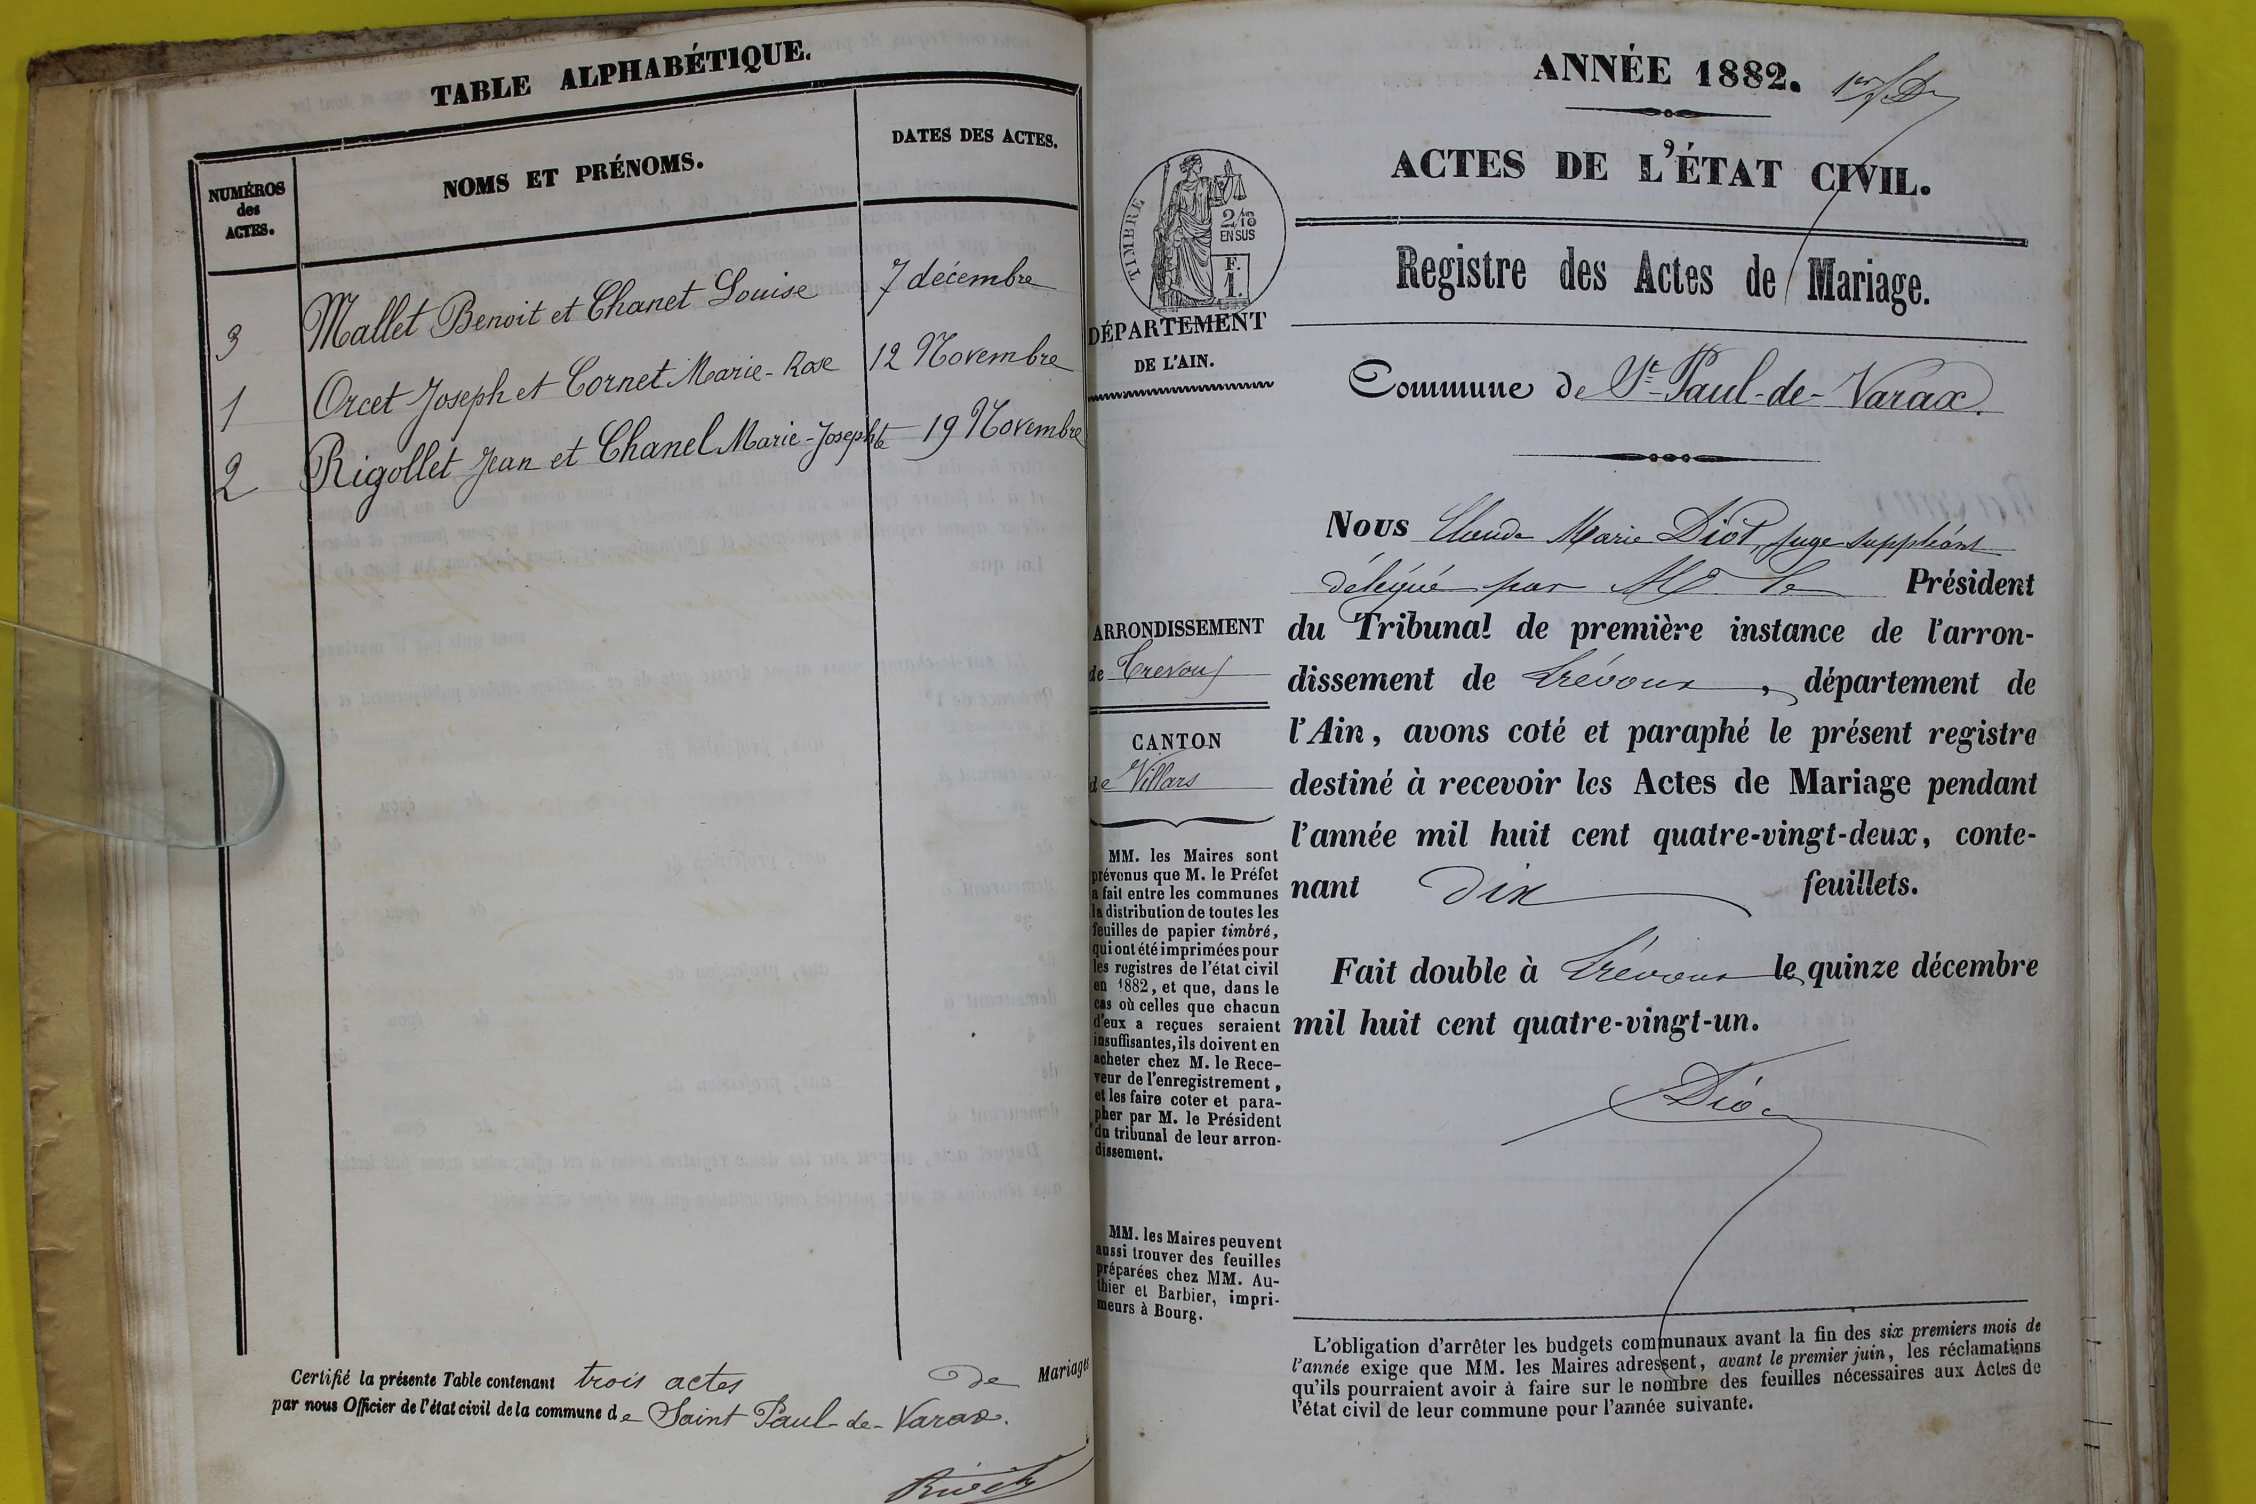 TABLE ALPHABÉTIQUE.
NUMÉROS
des
ACTES.
NOMS ET PRÉNOMS.
DATES DES ACTES.
3 Mallet Benoit et Chanet Louise 7 décembre
1 Orcet Joseph et Cornet Marie-Rose 12 Novembre
2 Rigollet Jean et Chanel Marie-Josephte 19 Novembre
Certifié la présente Table contenant trois actes de Mariages
par nous Officier de l'état civil de la commune de Saint Paul-de-Varax.
ANNÉE 1882.
ACTES DE L'ÉTAT CIVIL.
TIMBRE
2/10
EN SUS
F.
1.
DÉPARTEMENT
DE L'AIN.
Registre des Actes de Mariage.
Commune de St-Paul-de-Varax.
Nous Claude Marie Diot, juge suppléant
délégué par Mr le Président
du Tribunal de première instance de l'arron-
dissement de Trévoux, département de
l'Ain, avons coté et paraphé le présent registre
destiné à recevoir les Actes de Mariage pendant
l'année mil huit cent quatre-vingt-deux, conte-
nant dix feuillets.
Fait double à Trévoux le quinze décembre
mil huit cent quatre-vingt-un.
ARRONDISSEMENT
de Trevoux
CANTON
de Villars
MM. les Maires sont
prévenus que M. le Préfet
a fait entre les communes
la distribution de toutes les
feuilles de papier timbré,
qui ont été imprimées pour
les registres de l'état civil
en 1882, et que, dans le
cas où celles que chacun
d'eux a reçues seraient
insuffisantes, ils doivent en
acheter chez M. le Rece-
veur de l'enregistrement,
et les faire coter et para-
pher par M. le Président
du tribunal de leur arron-
dissement.
MM. les Maires peuvent
aussi trouver des feuilles
préparées chez MM. Au-
thier et Barbier, impri-
meurs à Bourg.
L'obligation d'arrêter les budgets communaux avant la fin des six premiers mois de
l'année exige que MM. les Maires adressent, avant le premier juin, les réclamations
qu'ils pourraient avoir à faire sur le nombre des feuilles nécessaires aux Actes de
l'état civil de leur commune pour l'année suivante.